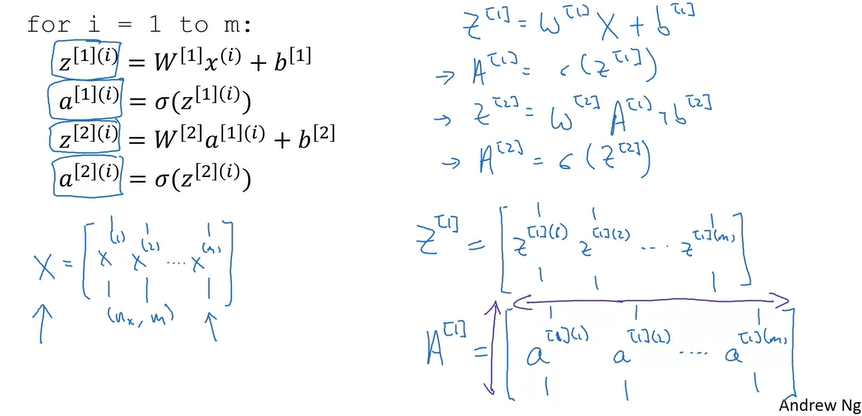 for i = 1 to m:
z[1](i) = W[1]x(i) + b[1]
a[1](i) = σ(z[1](i))
z[2](i) = W[2]a[1](i) + b[2]
a[2](i) = σ(z[2](i))
X = [x(1) x(2) .... x(m)]
(nx, m)
Z[1] = W[1] X + b[1]
→ A[1] = σ(Z[1])
→ Z[2] = W[2] A[1] + b[2]
→ A[2] = σ(Z[2])
Z[1] = [z[1](1) z[1](2) ... z[1](m)]
A[1] = [a[1](1) a[1](2) .... a[1](m)]
Andrew Ng